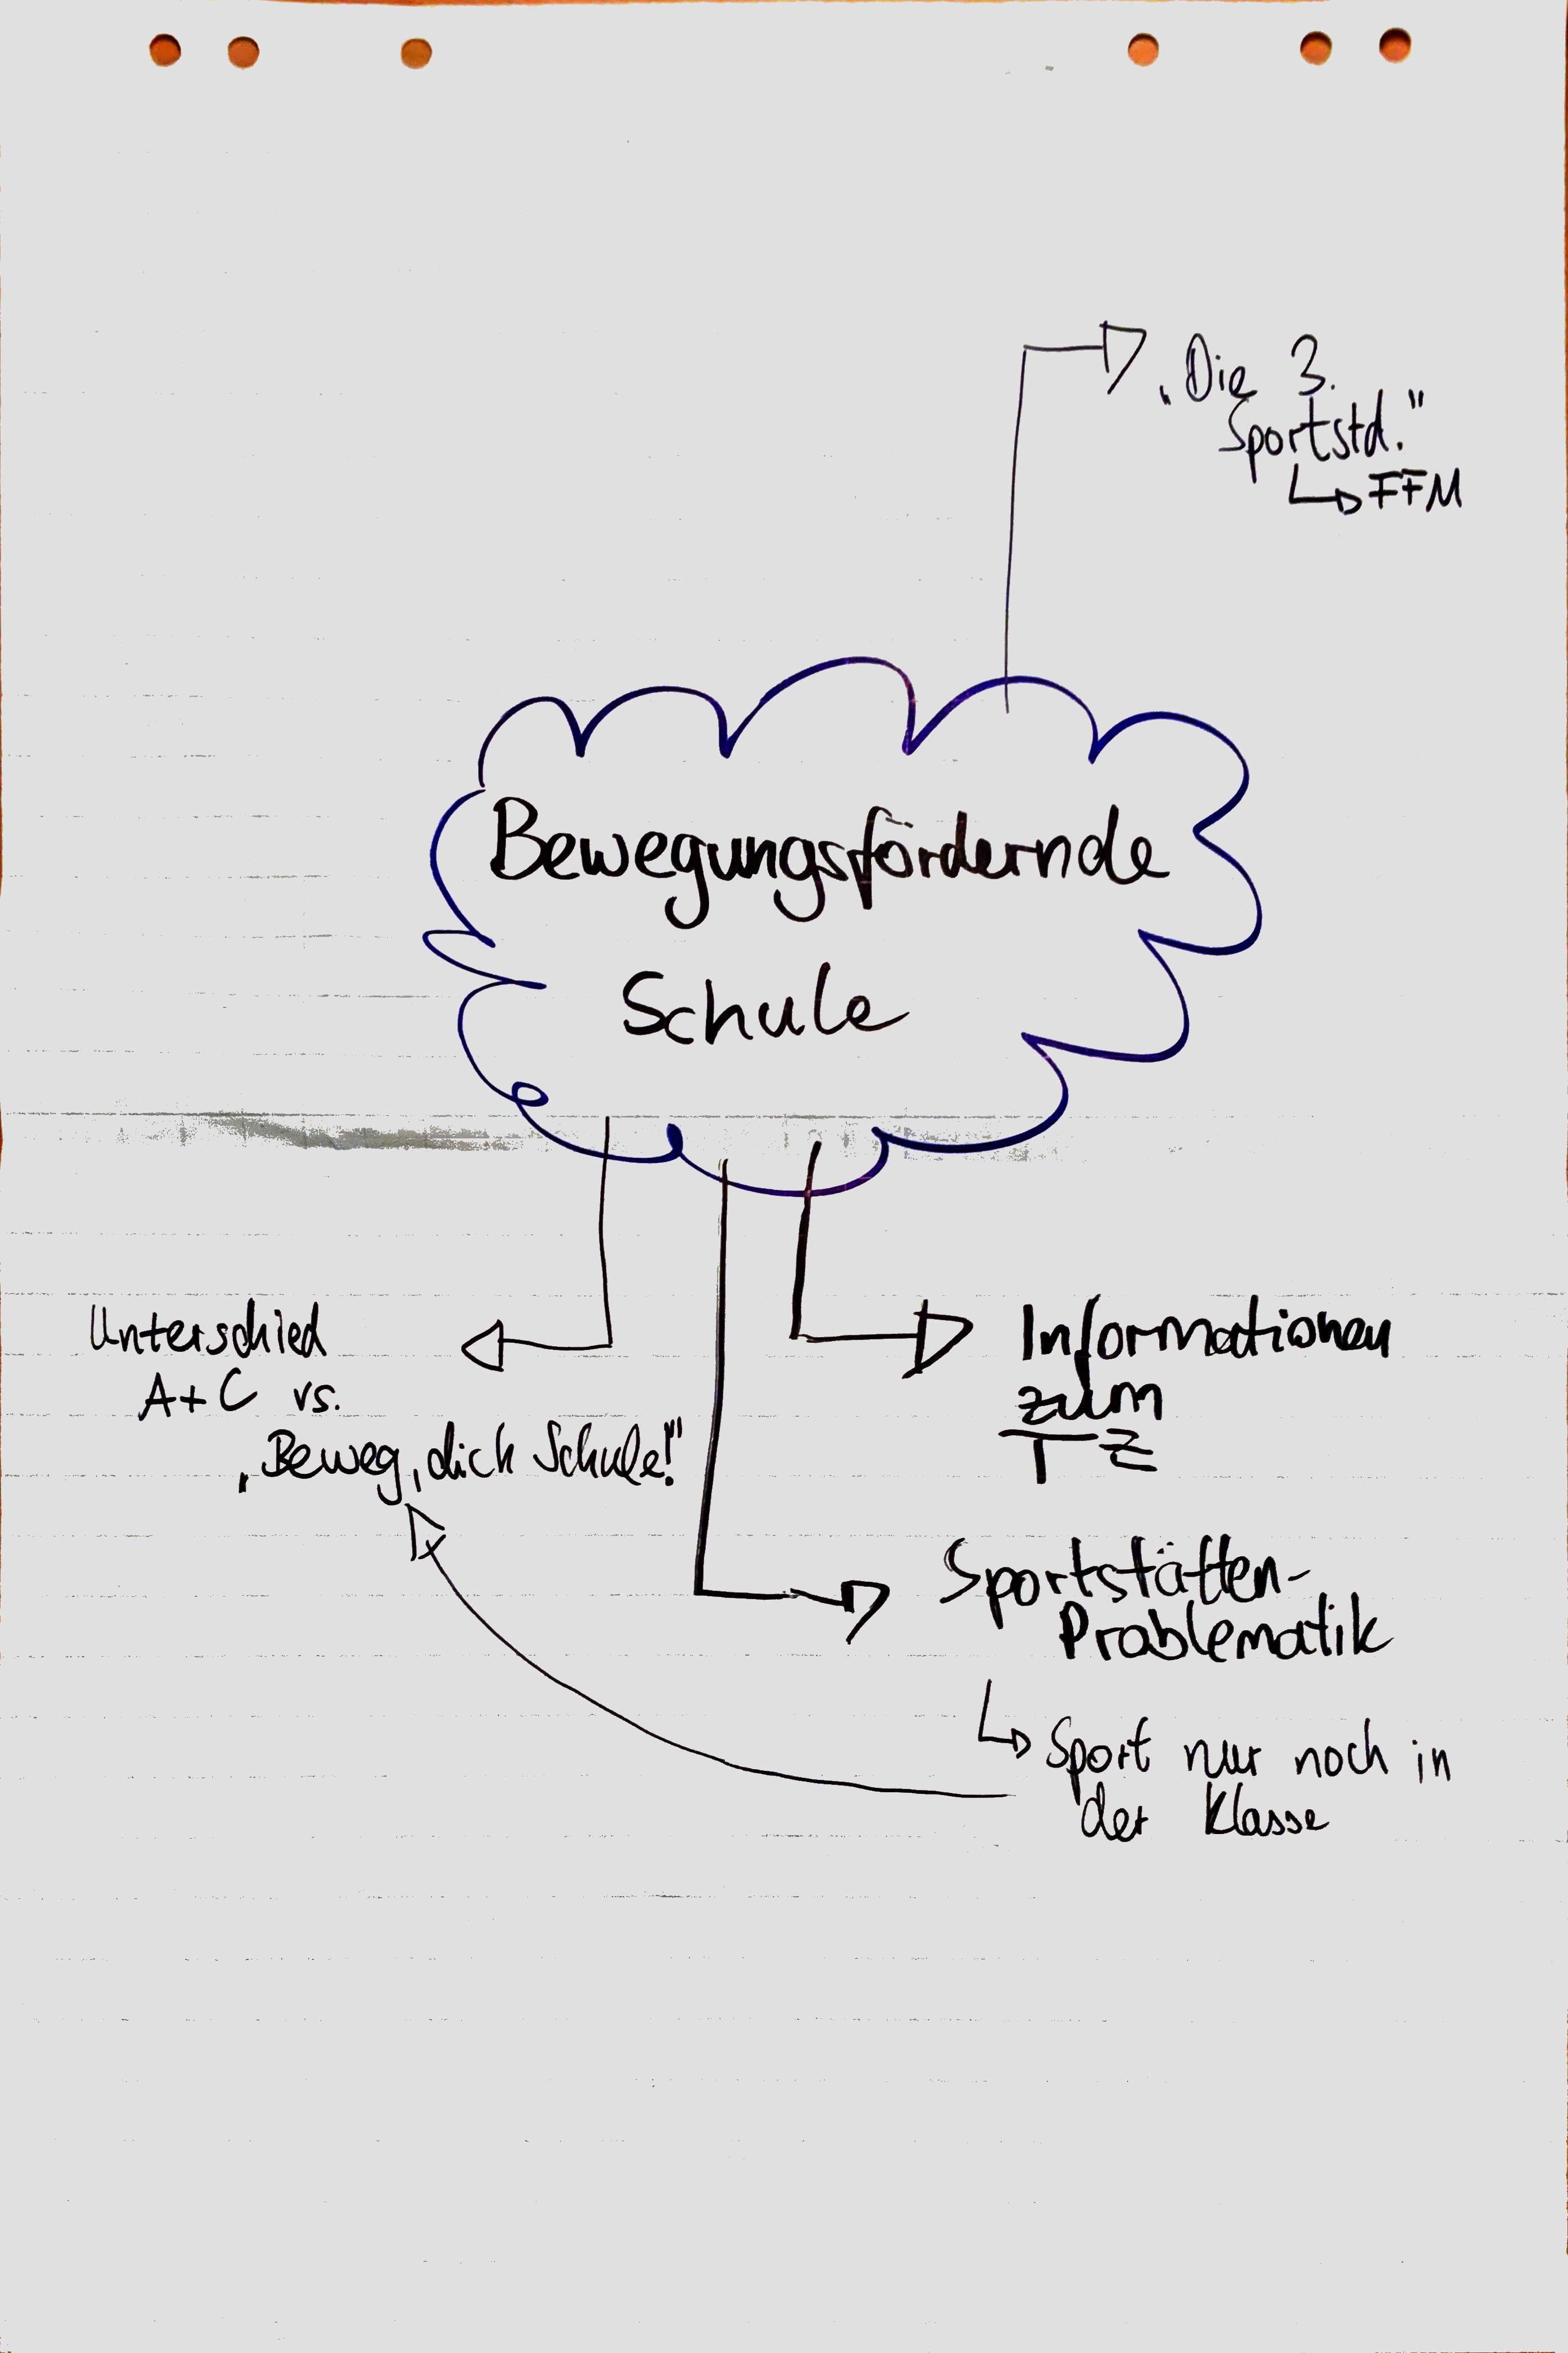 „Die 3.
Sportstd."
FFM
Bewegungsfördernde
Schule
Unterschied
A+C vs.
„Beweg, dich Schule!"
Informationen
zum
TZ
Sportstätten-
Problematik
Sport nur noch in
der Klasse